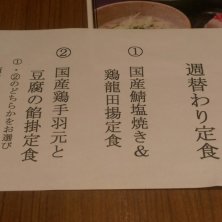 週替わり定食
①
国産鯖塩焼き&
鶏龍田揚定食
②
国産鶏手羽元と
豆腐の餡掛定食
①・②のどちらかをお選び